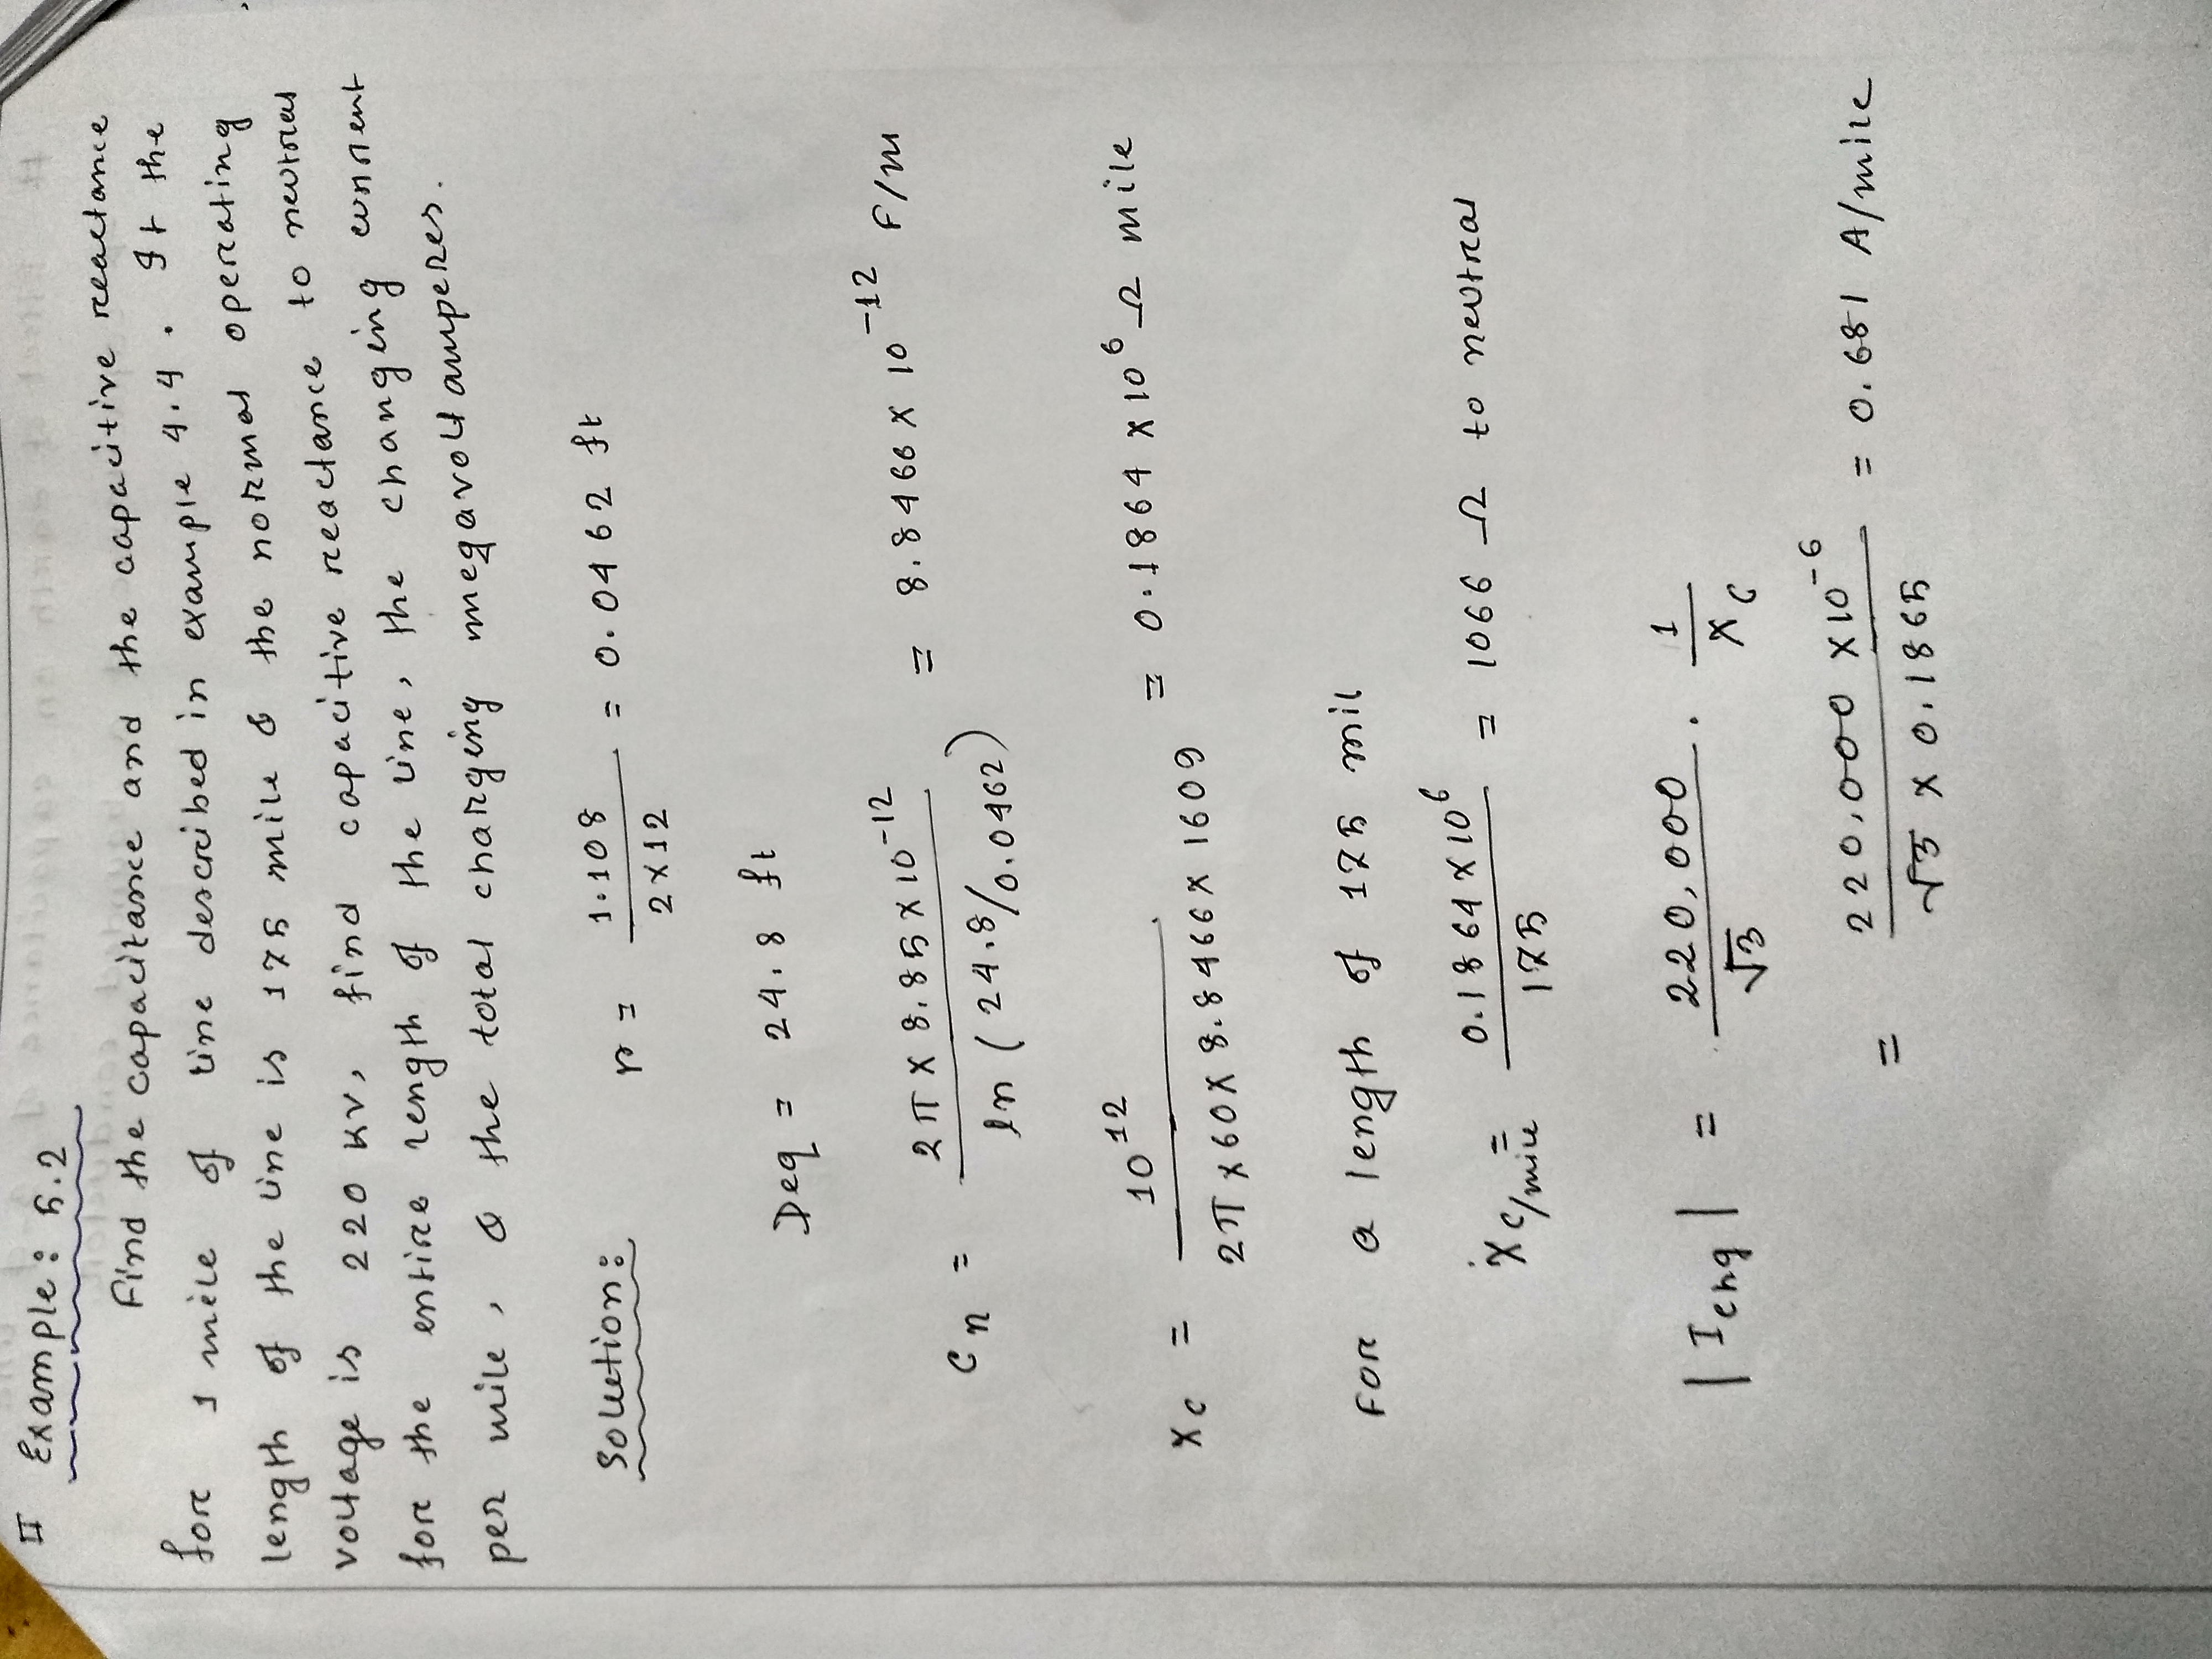 II Example: 5.2
Find the capacitance and the capacitive reactance
for 1 mile of line described in example 4.4. If the
length of the line is 175 mile & the normal operating
voltage is 220 kv, find capacitive reactance to neutral
for the entire length of the line, the charging current
per mile, & the total charging megavoltamperes.
Solution: r = 1.108 / 2×12 = 0.0462 ft
Deq = 24.8 ft
Cn = 2π × 8.85×10^-12 / ln (24.8/0.0462) = 8.8466×10^-12 F/m
Xc = 10^12 / 2π×60×8.8466×1609 = 0.1864×10^6 Ω mile
For a length of 175 mil
Xc/mile = 0.1864×10^6 / 175 = 1066 Ω to neutral
|Ichg| = 220,000 / √3 . 1 / Xc
= 220,000 ×10^-6 / √3 × 0.1865 = 0.681 A/mile